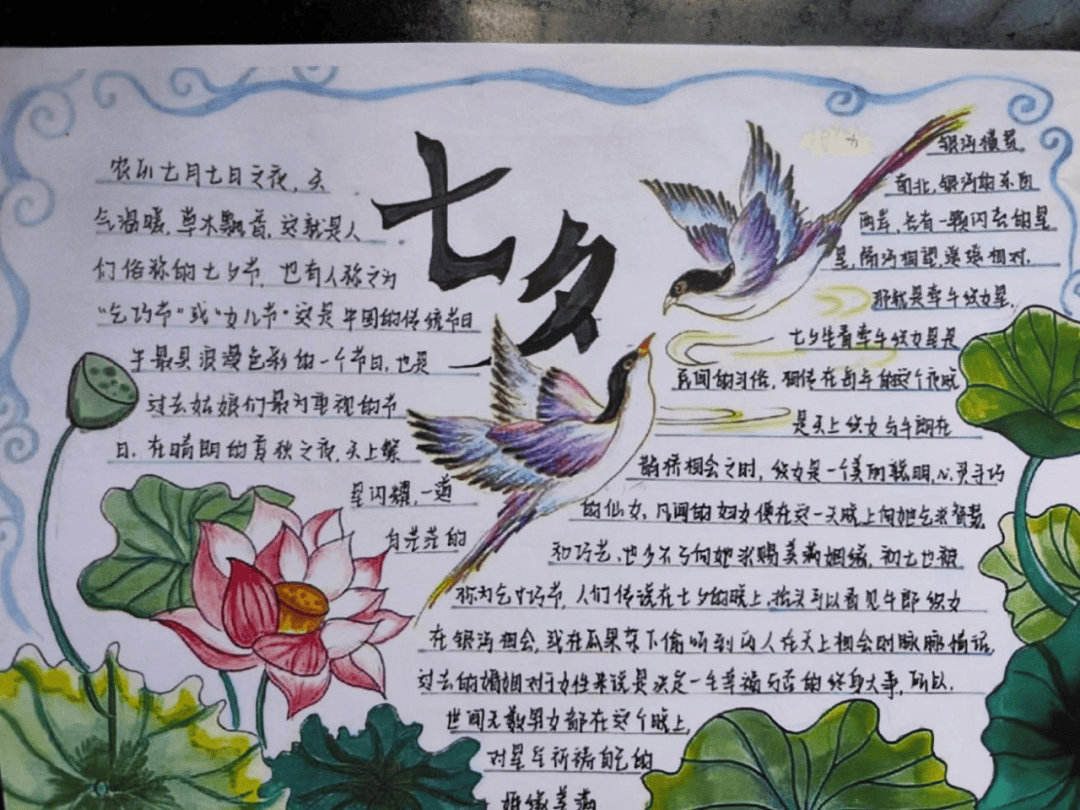 七夕
农历七月七日之夜，天
气温暖，草木飘香，这就是人
们俗称的七夕节，也有人称之为
“乞巧节”或“女儿节”这是中国的传统节日
中最具浪漫色彩的一个节日，也是
过去姑娘们最为重视的节
日。在晴朗的夏秋之夜，天上繁
星闪耀，一道
白茫茫的
银河横贯
南北，银河的东西
两岸，各有一颗闪亮的星
星，隔河相望，遥遥相对，
那就是牵牛织女星，
七夕坐看牵牛织女星是
民间的习俗，相传在每年的这个夜晚
是天上织女与牛郎在
鹊桥相会之时，织女是一个美丽聪明，心灵手巧
的仙女，凡间的妇女便在这一天晚上向她乞求智慧
和巧艺，也少不了向她求赐美满姻缘，
称为乞巧节，人们传说在七夕的晚上，抬头可以看见牛郎织女
在银河相会，或在瓜果架下偷听到两人在天上相会时脉脉情话，
过去的婚姻对于女性来说是决定一生幸福与否的终身大事，所以，
世间无数男女都在这个晚上，
对星空祈祷自己的
姻缘美满